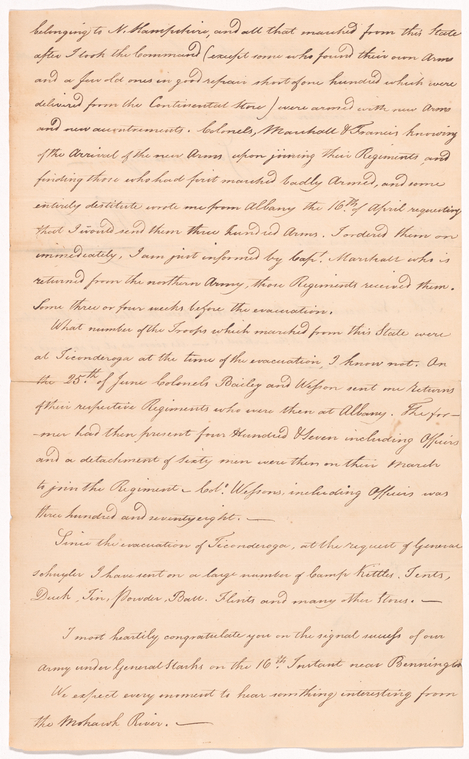 belonging to N. Hampshire, and all that marched from this State
after I took the Command (except some who found their own Arms
and a few old ones in good repair short of one hundred which were
delivered from the Continental Store) were armed with new Arms
and new accoutrements. Colonels, Marshall & Francis knowing
of the Arrival of the new Arms upon joining their Regiments, and
finding those who had first marched badly Armed, and some
entirely destitute wrote me from Albany the 16th of April requesting
that I would send them three hundred Arms. I ordered them on
immediately, I am just informed by Capt. Marshall who is
returned from the northern Army, those Regiments received them.
Some three or four weeks before the evacuation.
What number of the Troops which marched from this State were
at Ticonderoga at the time of the evacuation I know not. On
the 25th of June Colonels Bailey and Wesson sent me returns
of their respective Regiments who were then at Albany. The for-
-mer had then present four Hundred & Seven including Officers
and a detachment of sixty men were then on their March
to join the Regiment - Col. Wessons, including Officers was
three hundred and seventy eight. —
Since the evacuation of Ticonderoga, at the request of General
Schuyler I have sent on a large number of Camp Kettles, Tents,
Duck, Tin, Powder, Ball. Flints and many other Stores. —
I most heartily congratulate you on the signal success of our
Army under General Starks on the 16th Instant near Bennington
We expect every moment to hear something interesting from
the Mohawk River. —